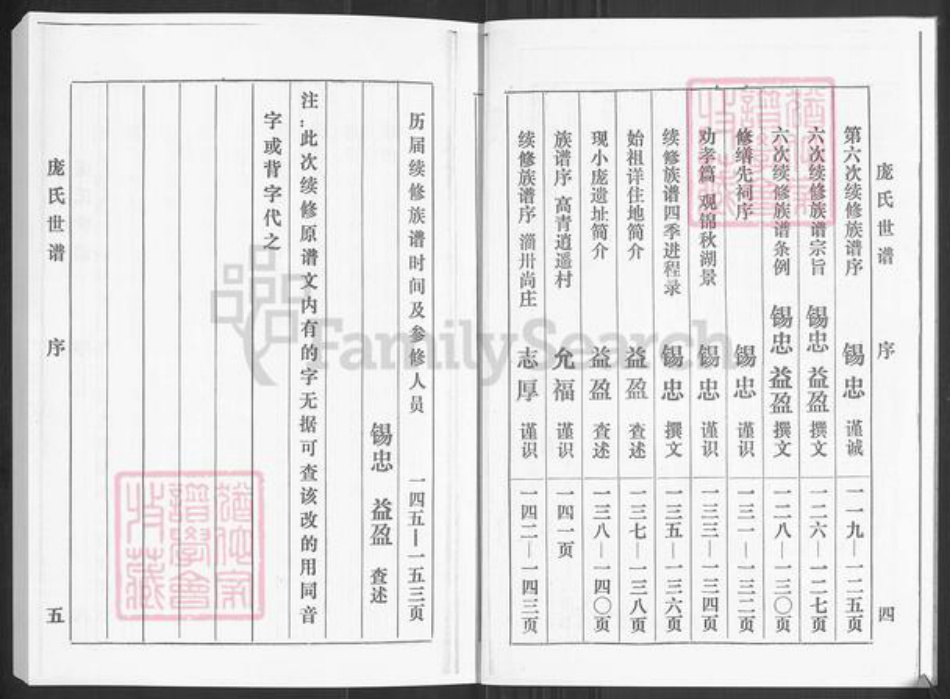 庞氏世谱 序 四
第六次续修族谱序 锡忠 谨诚 一一九—一二五页
六次续修族谱宗旨 锡忠 益盈 撰文 一二六—一二七页
六次续修族谱条例 锡忠 益盈 撰文 一二八—一三〇页
修缮先祠序 锡忠 谨识 一三一—一三二页
劝孝篇 观锦秋湖景 锡忠 谨识 一三三—一三四页
续修族谱四季进程录 锡忠 撰文 一三五—一三六页
始祖详住地简介 益盈 查述 一三七—一三八页
现小庞遗址简介 益盈 查述 一三八—一四〇页
族谱序 高青逍遥村 允福 谨识 一四一页
续修族谱序 淄川尚庄 志厚 谨识 一四二—一四三页
历届续修族谱时间及参修人员 一四五—一五三页
锡忠 益盈 查述
注:此次续修原谱文内有的字无据可查该改的用同音
字或背字代之
庞氏世谱 序 五
FamilySearch